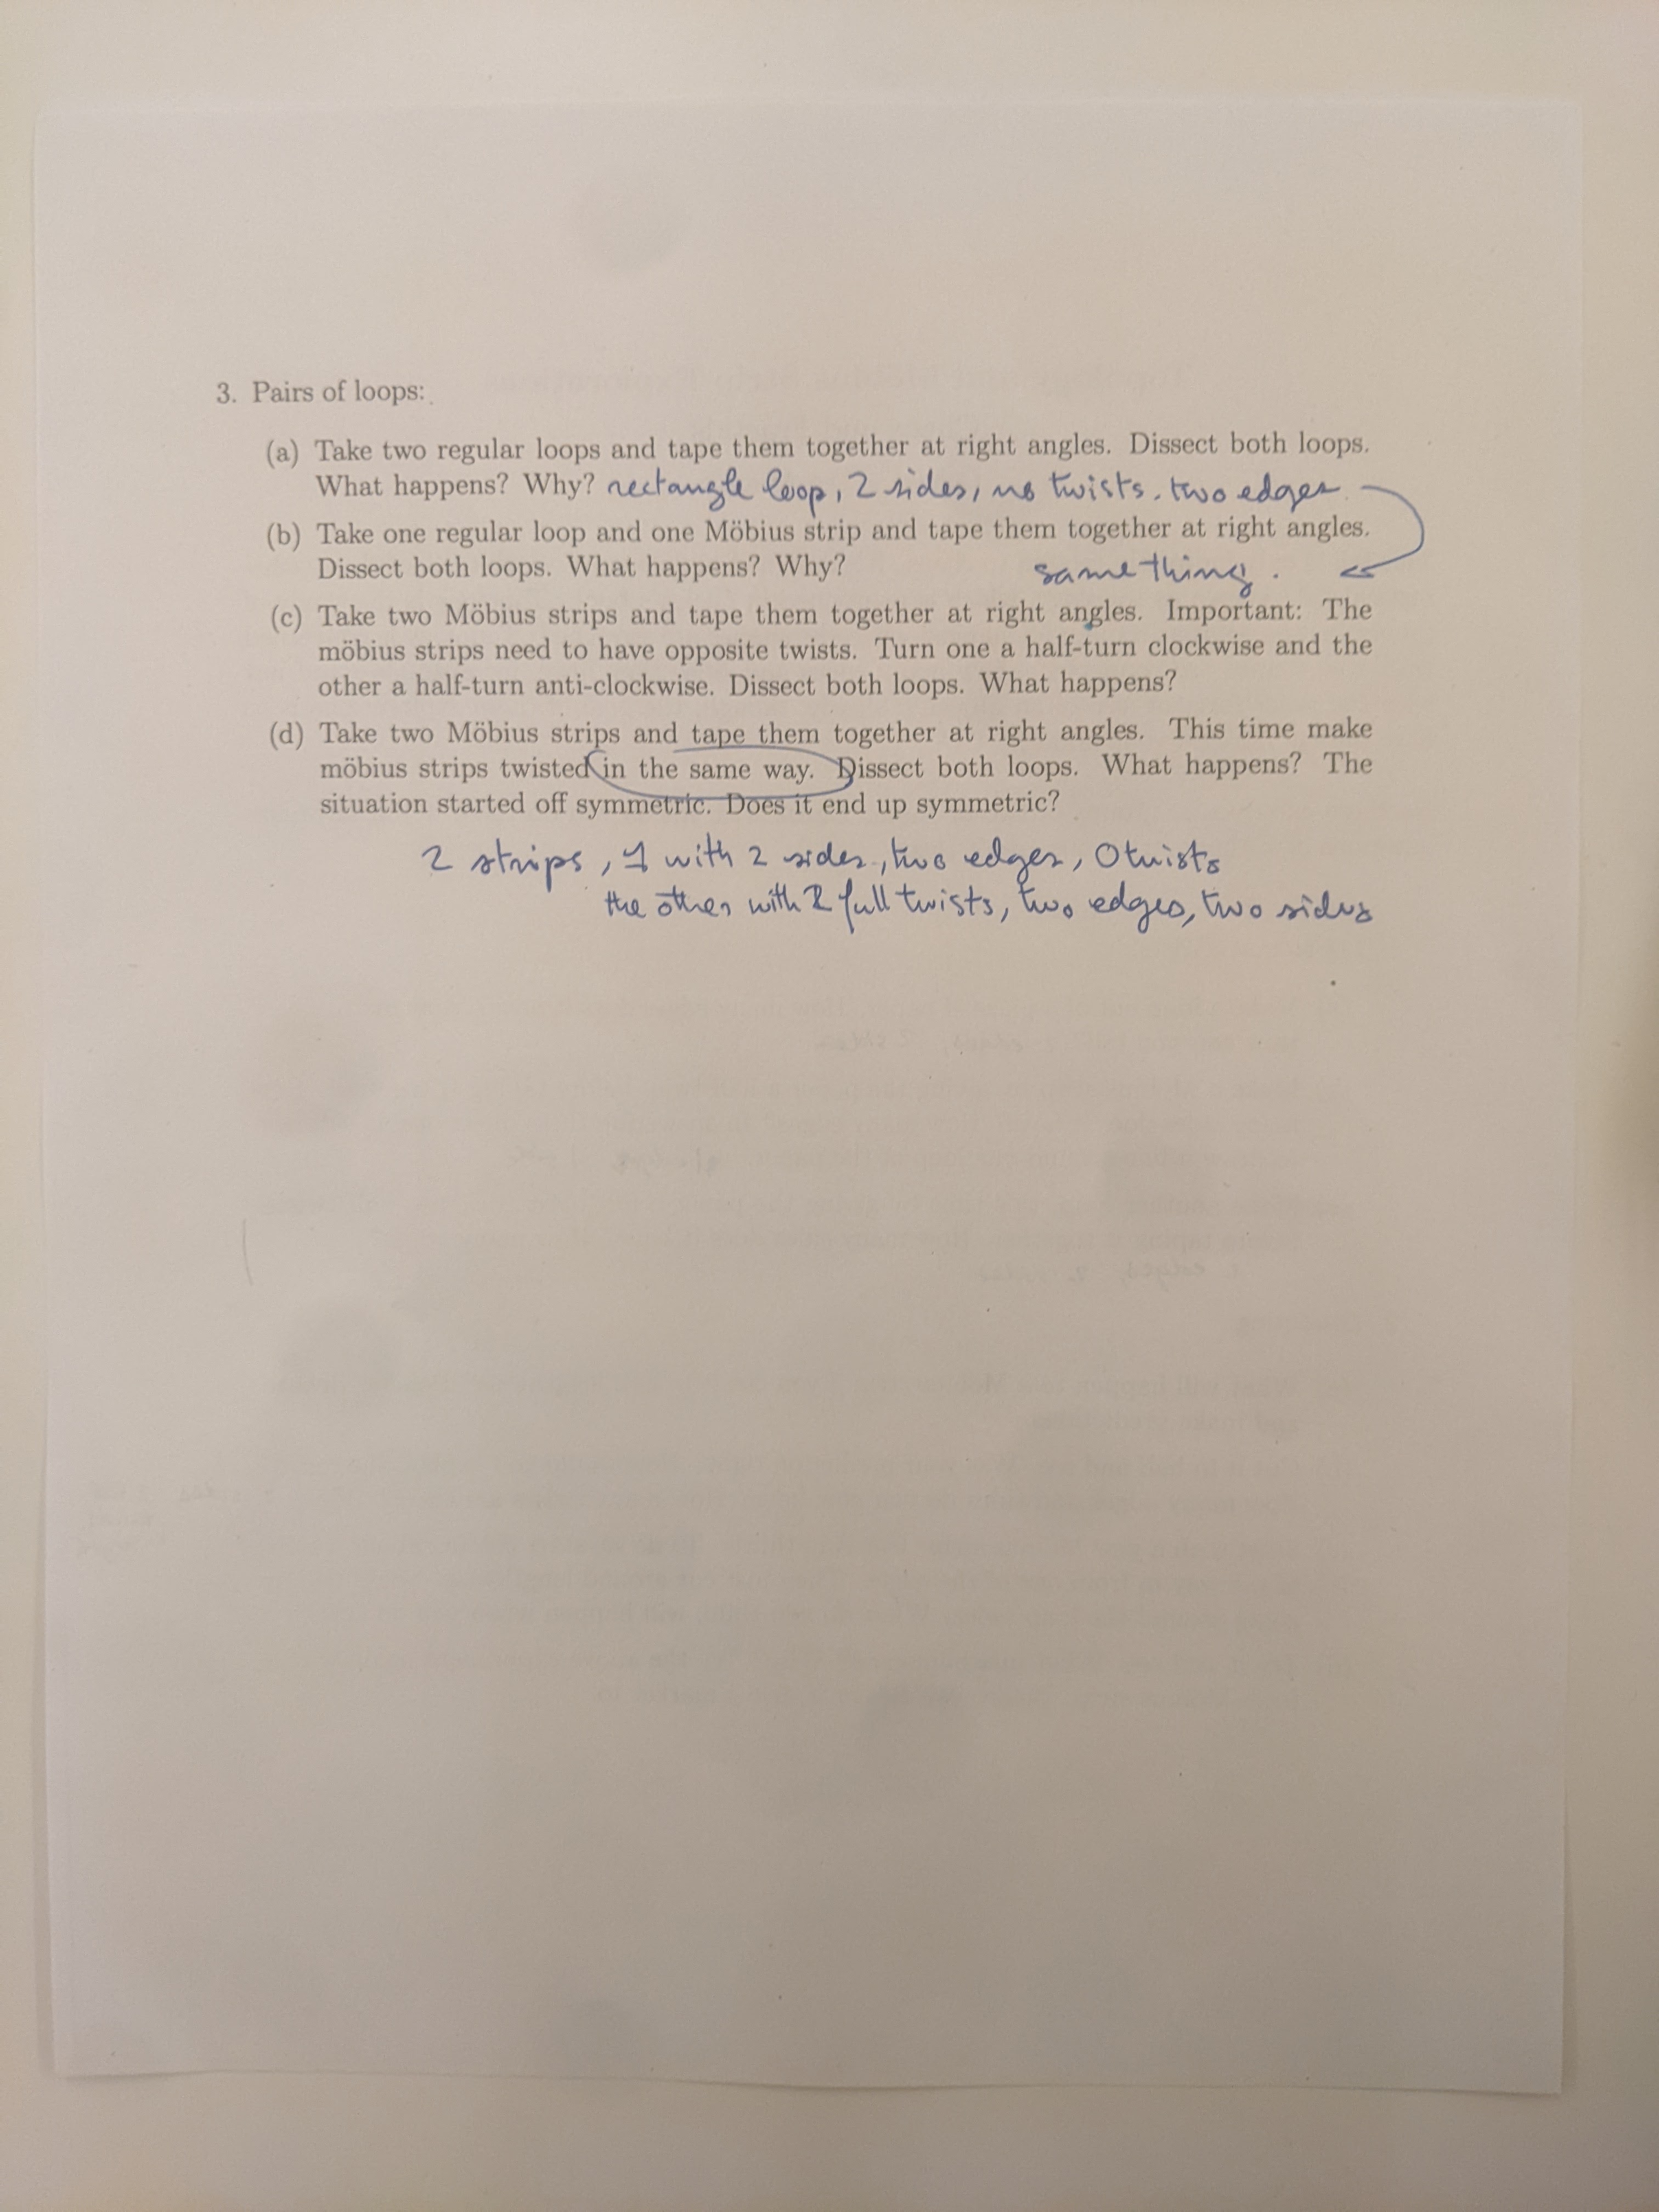 3. Pairs of loops:
(a) Take two regular loops and tape them together at right angles. Dissect both loops.
What happens? Why? rectangle loop, 2 sides, no twists, two edges.
(b) Take one regular loop and one Möbius strip and tape them together at right angles.
Dissect both loops. What happens? Why? same thing.
(c) Take two Möbius strips and tape them together at right angles. Important: The
möbius strips need to have opposite twists. Turn one a half-turn clockwise and the
other a half-turn anti-clockwise. Dissect both loops. What happens?
(d) Take two Möbius strips and tape them together at right angles. This time make
möbius strips twisted in the same way. Dissect both loops. What happens? The
situation started off symmetric. Does it end up symmetric?
2 strips, 1 with 2 sides, two edges, 0 twists
the other with 2 full twists, two edges, two sides